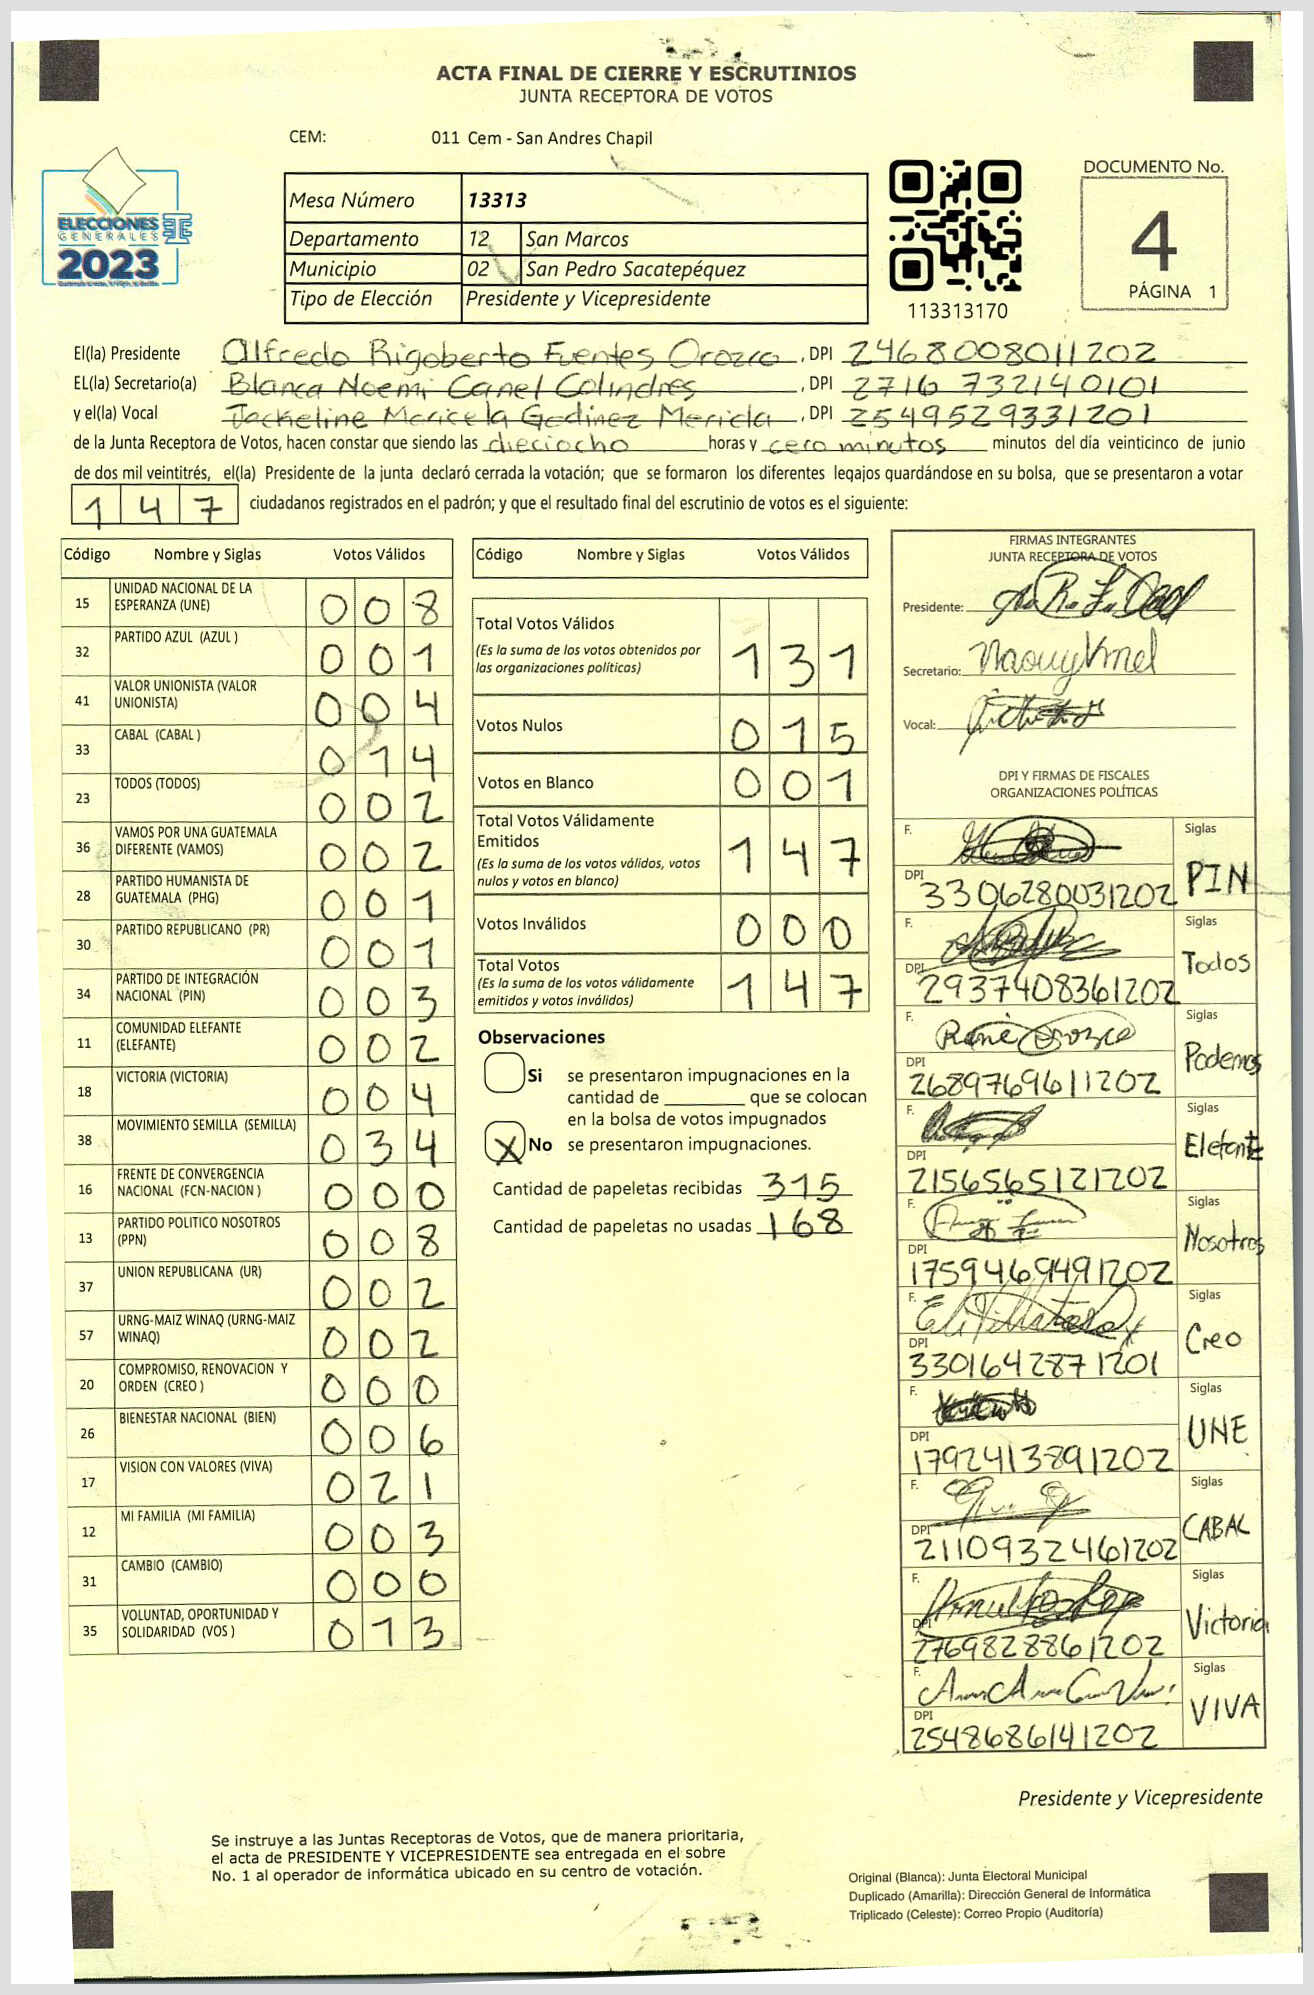 ACTA FINAL DE CIERRE Y ESCRUTINIOS
JUNTA RECEPTORA DE VOTOS
CEM: 011 Cem - San Andres Chapil
ELECCIONES
GENERALES
2023
Mesa Número 13313
Departamento 12 San Marcos
Municipio 02 San Pedro Sacatepéquez
Tipo de Elección Presidente y Vicepresidente
113313170
DOCUMENTO No.
4
PÁGINA 1
El(la) Presidente Alfredo Rigoberto Fuentes Orozco, DPI 2468008011202
EL(la) Secretario(a) Blanca Noemi Canel Colindres, DPI 2716 732140101
y el(la) Vocal Jackeline Maricela Godinez Merida, DPI 2549529331201
de la Junta Receptora de Votos, hacen constar que siendo las dieciocho horas y cero minutos minutos del día veinticinco de junio
de dos mil veintitrés, el(la) Presidente de la junta declaró cerrada la votación; que se formaron los diferentes legajos guardándose en su bolsa, que se presentaron a votar
147 ciudadanos registrados en el padrón; y que el resultado final del escrutinio de votos es el siguiente:
Código Nombre y Siglas Votos Válidos
15 UNIDAD NACIONAL DE LA ESPERANZA (UNE) 008
32 PARTIDO AZUL (AZUL ) 001
41 VALOR UNIONISTA (VALOR UNIONISTA) 004
33 CABAL (CABAL ) 014
23 TODOS (TODOS) 002
36 VAMOS POR UNA GUATEMALA DIFERENTE (VAMOS) 002
28 PARTIDO HUMANISTA DE GUATEMALA (PHG) 001
30 PARTIDO REPUBLICANO (PR) 001
34 PARTIDO DE INTEGRACIÓN NACIONAL (PIN) 003
11 COMUNIDAD ELEFANTE (ELEFANTE) 002
18 VICTORIA (VICTORIA) 004
38 MOVIMIENTO SEMILLA (SEMILLA) 034
16 FRENTE DE CONVERGENCIA NACIONAL (FCN-NACION ) 000
13 PARTIDO POLITICO NOSOTROS (PPN) 008
37 UNION REPUBLICANA (UR) 002
57 URNG-MAIZ WINAQ (URNG-MAIZ WINAQ) 002
20 COMPROMISO, RENOVACION Y ORDEN (CREO ) 000
26 BIENESTAR NACIONAL (BIEN) 006
17 VISION CON VALORES (VIVA) 021
12 MI FAMILIA (MI FAMILIA) 003
31 CAMBIO (CAMBIO) 000
35 VOLUNTAD, OPORTUNIDAD Y SOLIDARIDAD (VOS ) 013
Código Nombre y Siglas Votos Válidos
Total Votos Válidos 131
(Es la suma de los votos obtenidos por
las organizaciones políticas)
Votos Nulos 015
Votos en Blanco 001
Total Votos Válidamente
Emitidos 147
(Es la suma de los votos válidos, votos
nulos y votos en blanco)
Votos Inválidos 000
Total Votos 147
(Es la suma de los votos válidamente
emitidos y votos inválidos)
Observaciones
Si se presentaron impugnaciones en la
cantidad de ________ que se colocan
en la bolsa de votos impugnados
X No se presentaron impugnaciones.
Cantidad de papeletas recibidas 315
Cantidad de papeletas no usadas 168
FIRMAS INTEGRANTES
JUNTA RECEPTORA DE VOTOS
Presidente:
Secretario:
Vocal:
DPI Y FIRMAS DE FISCALES
ORGANIZACIONES POLÍTICAS
F. Siglas
DPI 3306280031202 PIN
F. Siglas
DPI 2937408361202 Todos
F. René Orozco Siglas
DPI 2689769611202 Podemos
F. Siglas
DPI 2156565121202 Elefante
F. Siglas
DPI 1759469491202 Nosotros
F. Siglas
DPI 3301642871201 Creo
F. Siglas
DPI 1792413891202 UNE
F. Siglas
DPI 2110932461202 CABAL
F. Siglas
DPI 2769828861202 Victoria
F. Siglas
DPI 2548686141202 VIVA
Presidente y Vicepresidente
Se instruye a las Juntas Receptoras de Votos, que de manera prioritaria,
el acta de PRESIDENTE Y VICEPRESIDENTE sea entregada en el sobre
No. 1 al operador de informática ubicado en su centro de votación.
Original (Blanca): Junta Electoral Municipal
Duplicado (Amarilla): Dirección General de Informática
Triplicado (Celeste): Correo Propio (Auditoría)